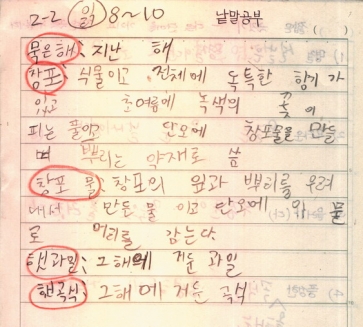 2-2 (읽) 8~10 낱말공부
묵은해: 지난 해
창포: 식물이고 전체에 독특한 향기가
있고 초여름에 녹색의 꽃이
피는 풀이고 단오에 창포물을 만들
며 뿌리는 약재로 씀
창포 물: 창포의 잎과 뿌리를 우려
내서 만든 물 이고 단오에 이 물
로 머리를 감는다.
햇과일: 그해에 거둔 과일
햇곡식: 그해에 거둔 곡식